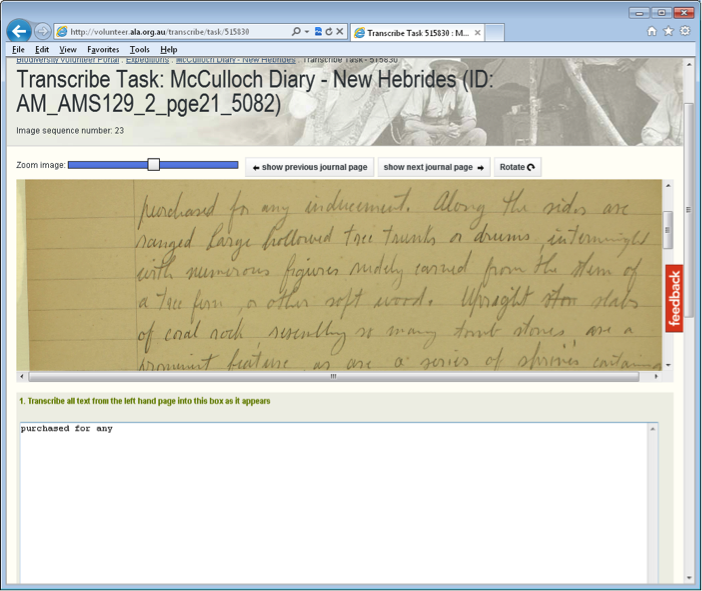 http://volunteer.ala.org.au/transcribe/task/515830
Transcribe Task 515830 : M...
File Edit View Favorites Tools Help
Biodiversity Volunteer Portal Expeditions McCulloch Diary - New Hebrides Transcribe Task - 515830
Transcribe Task: McCulloch Diary - New Hebrides (ID:
AM_AMS129_2_pge21_5082)
Image sequence number: 23
Zoom image: show previous journal page show next journal page Rotate
purchased for any inducement. Along the sides are
ranged large hollowed tree trunks or drums, intermingled
with numerous figures rudely carved from the stem of
a tree fern, or other soft wood. Upright stone slabs
of coral rock, resembling so many tomb stones, are a
prominent feature, as are a series of shrines
feedback
1. Transcribe all text from the left hand page into this box as it appears
purchased for any